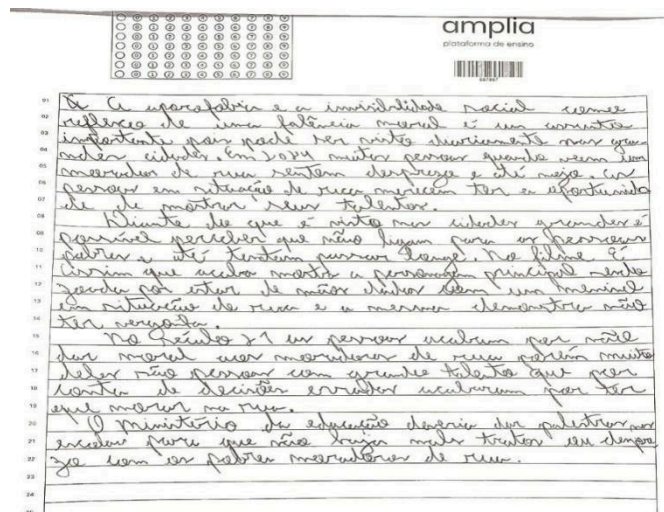 amplia
plataforma de ensino
A aporofobia e a invisibilidade social como
reflexo de uma falência moral é um assunto
importante pois pode ser visto diariamente nas gra-
ndes cidades. Em 2024 muitas pessoas quando veem um
morador de rua sentem desprezo e até nojo. as
pessoas em situação de rua merecem ter a oportunida
de de mostrar seus talentos.
Diante do que é visto nas cidades grandes é
possível perceber que não ligam para as pessoas
pobres e até tentam passar longe. No filme É
assim que acaba mostra a personagem principal sendo
zoada por estar de mãos dadas com um menino
em situação de rua e a mesma demonstra não
ter vergonha.
No século 21 as pessoas acabam por não
dar moral aos moradores de rua porém muito
deles são pessoas com grande talento que por
conta de decisões erradas acabaram por ter
que morar na rua.
O ministério da educação deveria dar palestras nas
escolas para que não haja mals tratos ou despre
zo com os pobres moradores de rua.